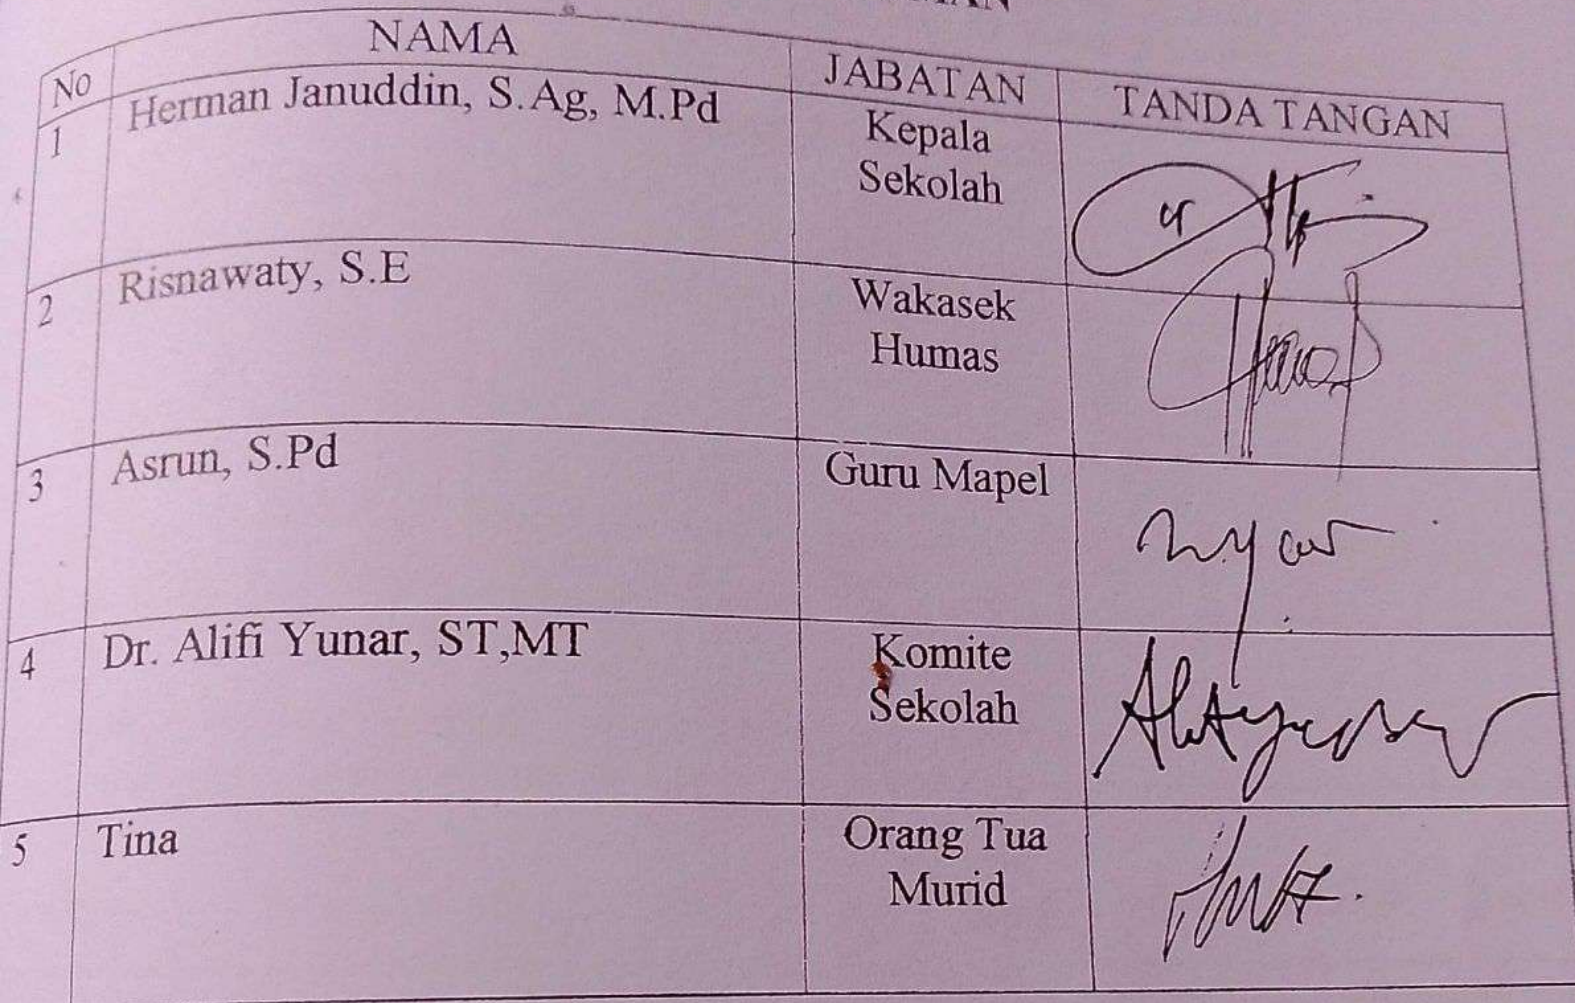 No NAMA JABATAN TANDA TANGAN
1 Herman Januddin, S.Ag, M.Pd Kepala
Sekolah
2 Risnawaty, S.E Wakasek
Humas
3 Asrun, S.Pd Guru Mapel
4 Dr. Alifi Yunar, ST,MT Komite
Sekolah
5 Tina Orang Tua
Murid